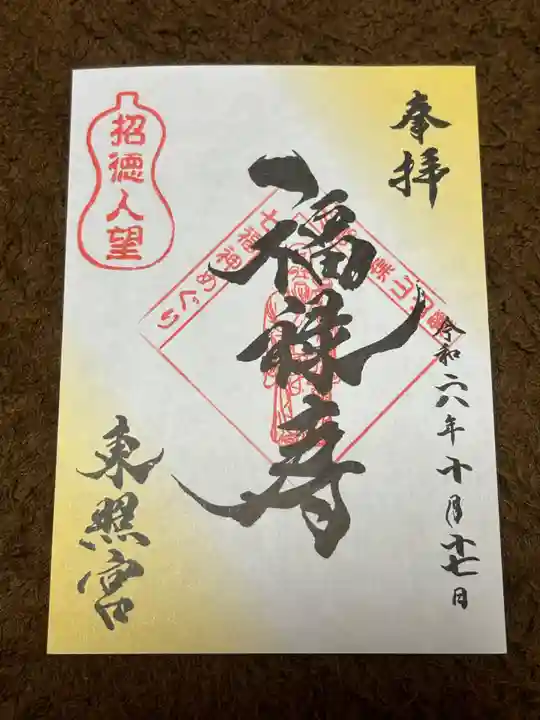 奉拝
令和六年十月十七日
福禄寿
七福神めぐり
招徳人望
東照宮